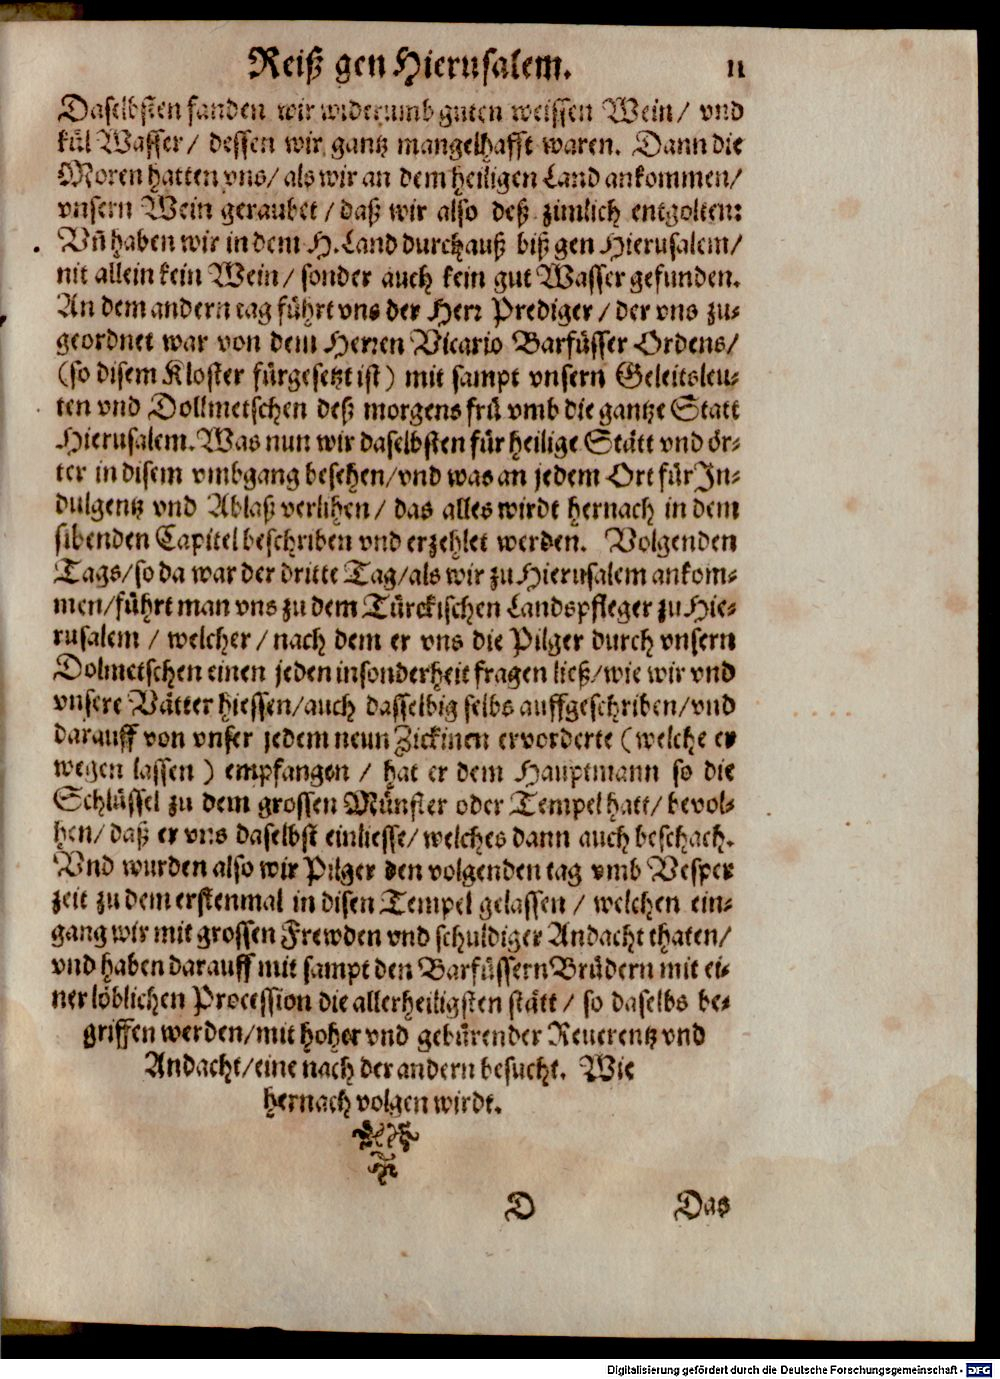 Reiß gen Hierusalem. 11
Daselbsten fanden wir widerumb guten weissen Wein/ vnd
kül Wasser/ dessen wir gantz mangelhafft waren. Dann die
Moren hatten vns/ als wir an dem heiligen Land ankommen/
vnsern Wein geraubet/ daß wir also deß zimlich entgolten:
Vñ haben wir in dem H. Land durchauß biß gen Hierusalem/
nit allein kein Wein/ sonder auch kein gut Wasser gefunden.
An dem andern tag führt vns der Herr Prediger/ der vns zu-
geordnet war von dem Herren Vicario Barfüsser Ordens/
(so disem Kloster fürgesetzt ist) mit sampt vnsern Geleitsleu-
ten vnd Dollmetschen deß morgens frü vmb die gantze Statt
Hierusalem. Was nun wir daselbsten für heilige Stätt vnd ör-
ter in disem vmbgang besehen/ vnd was an jedem Ort für In-
dulgentz vnd Ablaß verlihen/ das alles wirdt hernach in dem
sibenden Capitel beschriben vnd erzehlet werden. Volgenden
Tags/ so da war der dritte Tag/ als wir zu Hierusalem ankom-
men/ führt man vns zu dem Türckischen Landspfleger zu Hie-
rusalem/ welcher/ nach dem er vns die Pilger durch vnsern
Dolmetschen einen jeden insonderheit fragen ließ/ wie wir vnd
vnsere Vätter hiessen/ auch dasselbig selbs auffgeschriben/ vnd
darauff von vnser jedem neun Zickinen ervorderte (welche er
wegen lassen) empfangen/ hat er dem Hauptmann so die
Schlüssel zu dem grossen Münster oder Tempel hatt/ bevol-
hen/ daß er vns daselbst einliesse/ welches dann auch beschach.
Vnd wurden also wir Pilger den volgenden tag vmb Vesper
zeit zu dem erstenmal in disen Tempel gelassen/ welchen ein-
gang wir mit grossen Frewden vnd schuldiger Andacht thaten/
vnd haben darauff mit sampt den Barfüssern Brüdern mit ei-
ner löblichen Procession die allerheiligsten stätt/ so daselbs be-
griffen werden/ mit hoher vnd gebürender Reuerentz vnd
Andacht/ eine nach der andern besucht. Wie
hernach volgen wirdt.
D Das
Digitalisierung gefördert durch die Deutsche Forschungsgemeinschaft - DFG